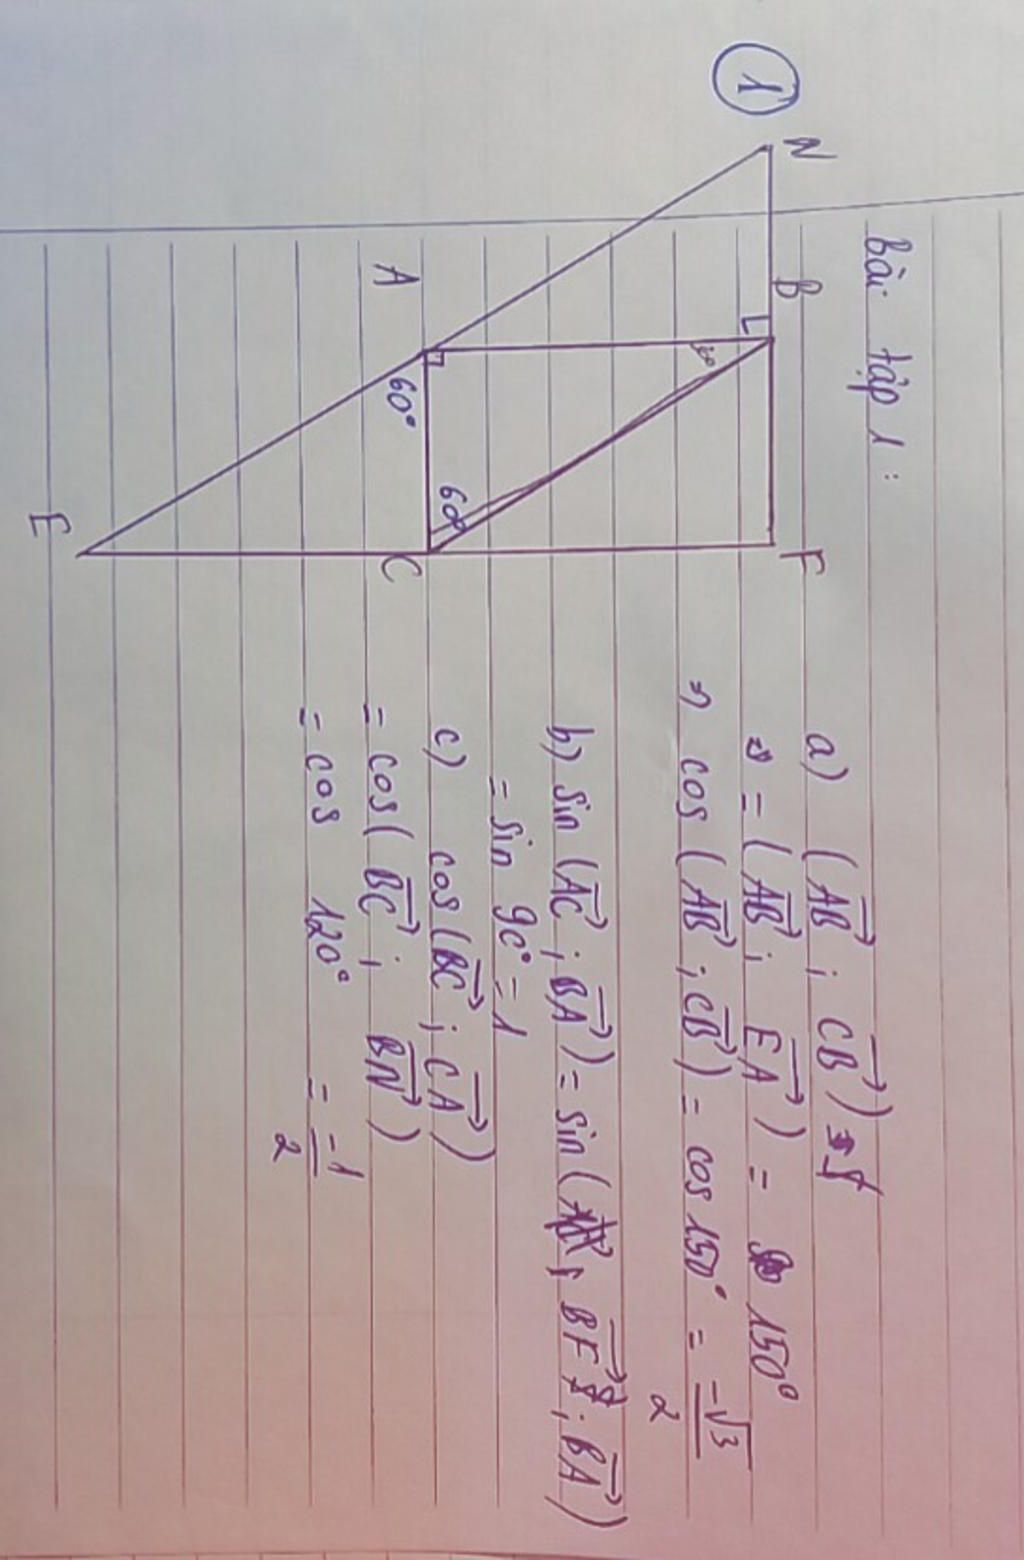 ①
bài tập 1 :
N
B
F
60°
A
60°
60°
C
E
a) (AB→ ; CB→)
= (AB→ ; EA→) = 150°
⇒ cos (AB→ ; CB→) = cos 150° = -√3/2
b) sin (AC→ ; BA→) = sin ( BF→ ; BA→)
= sin 90° = 1
c) cos (BC→ ; CA→)
= cos (BC→ ; BN→)
= cos 120° = -1/2